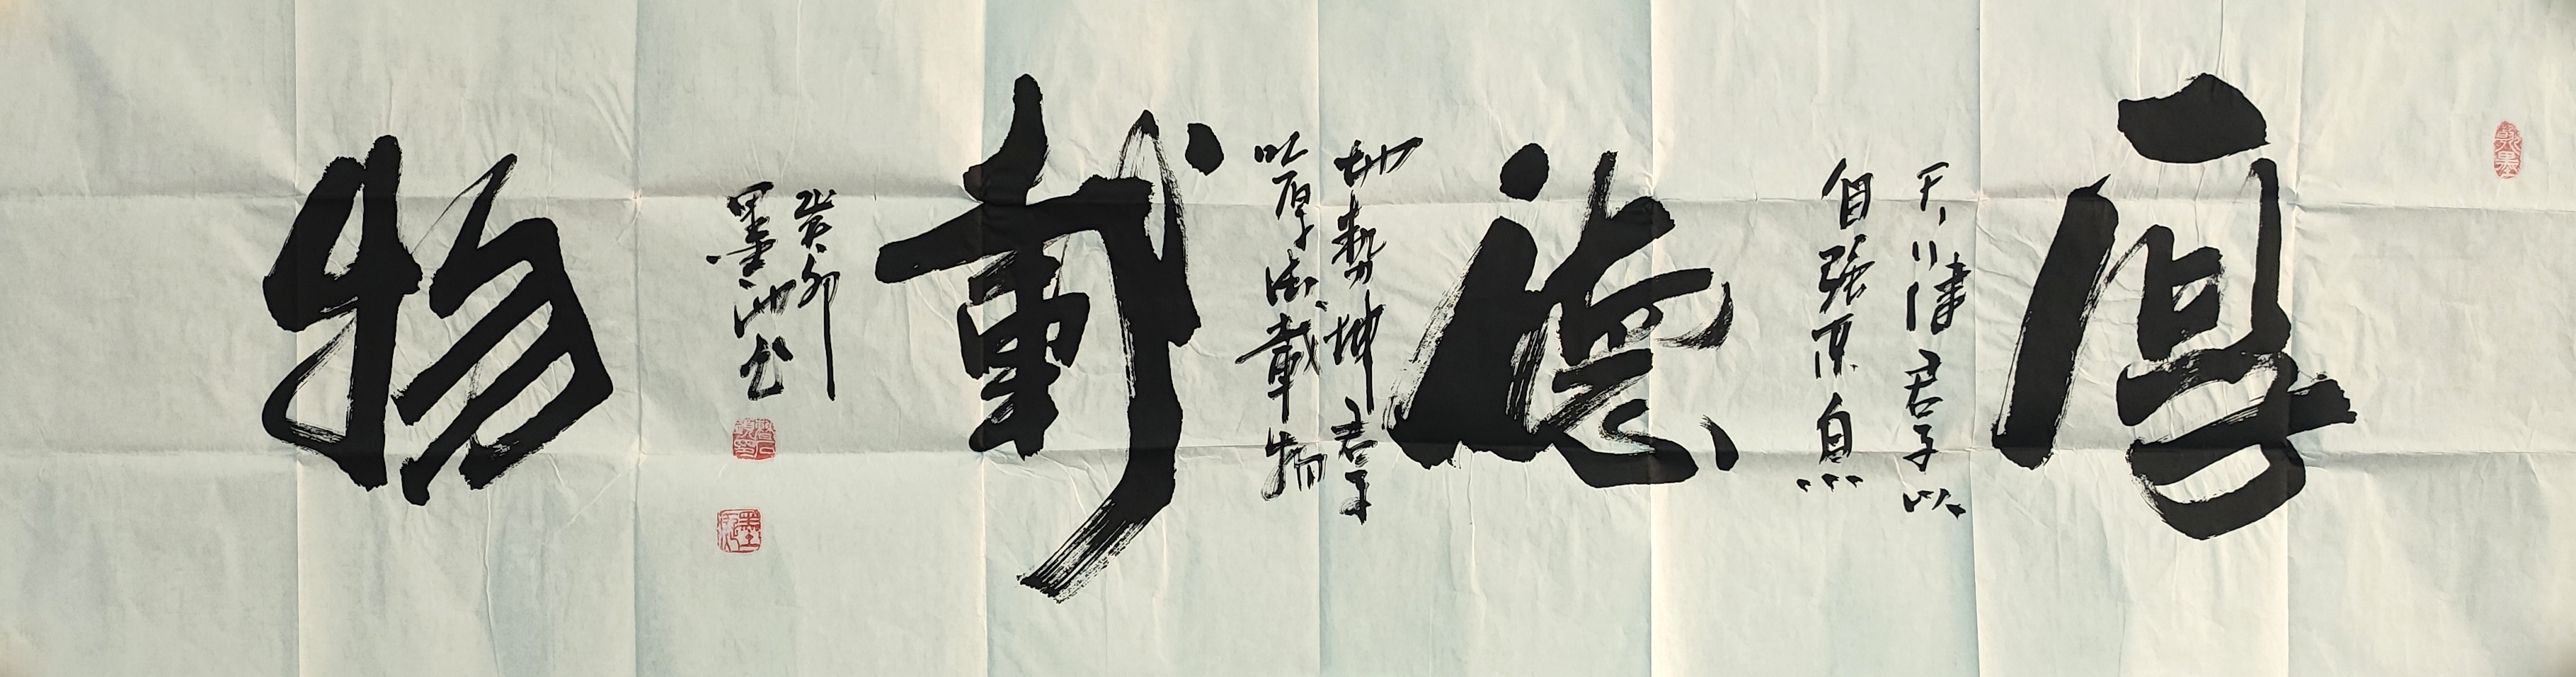 厚
天行健君子以
自强不息
德
地勢坤君子
以厚德載物
載
癸卯
墨池书
物